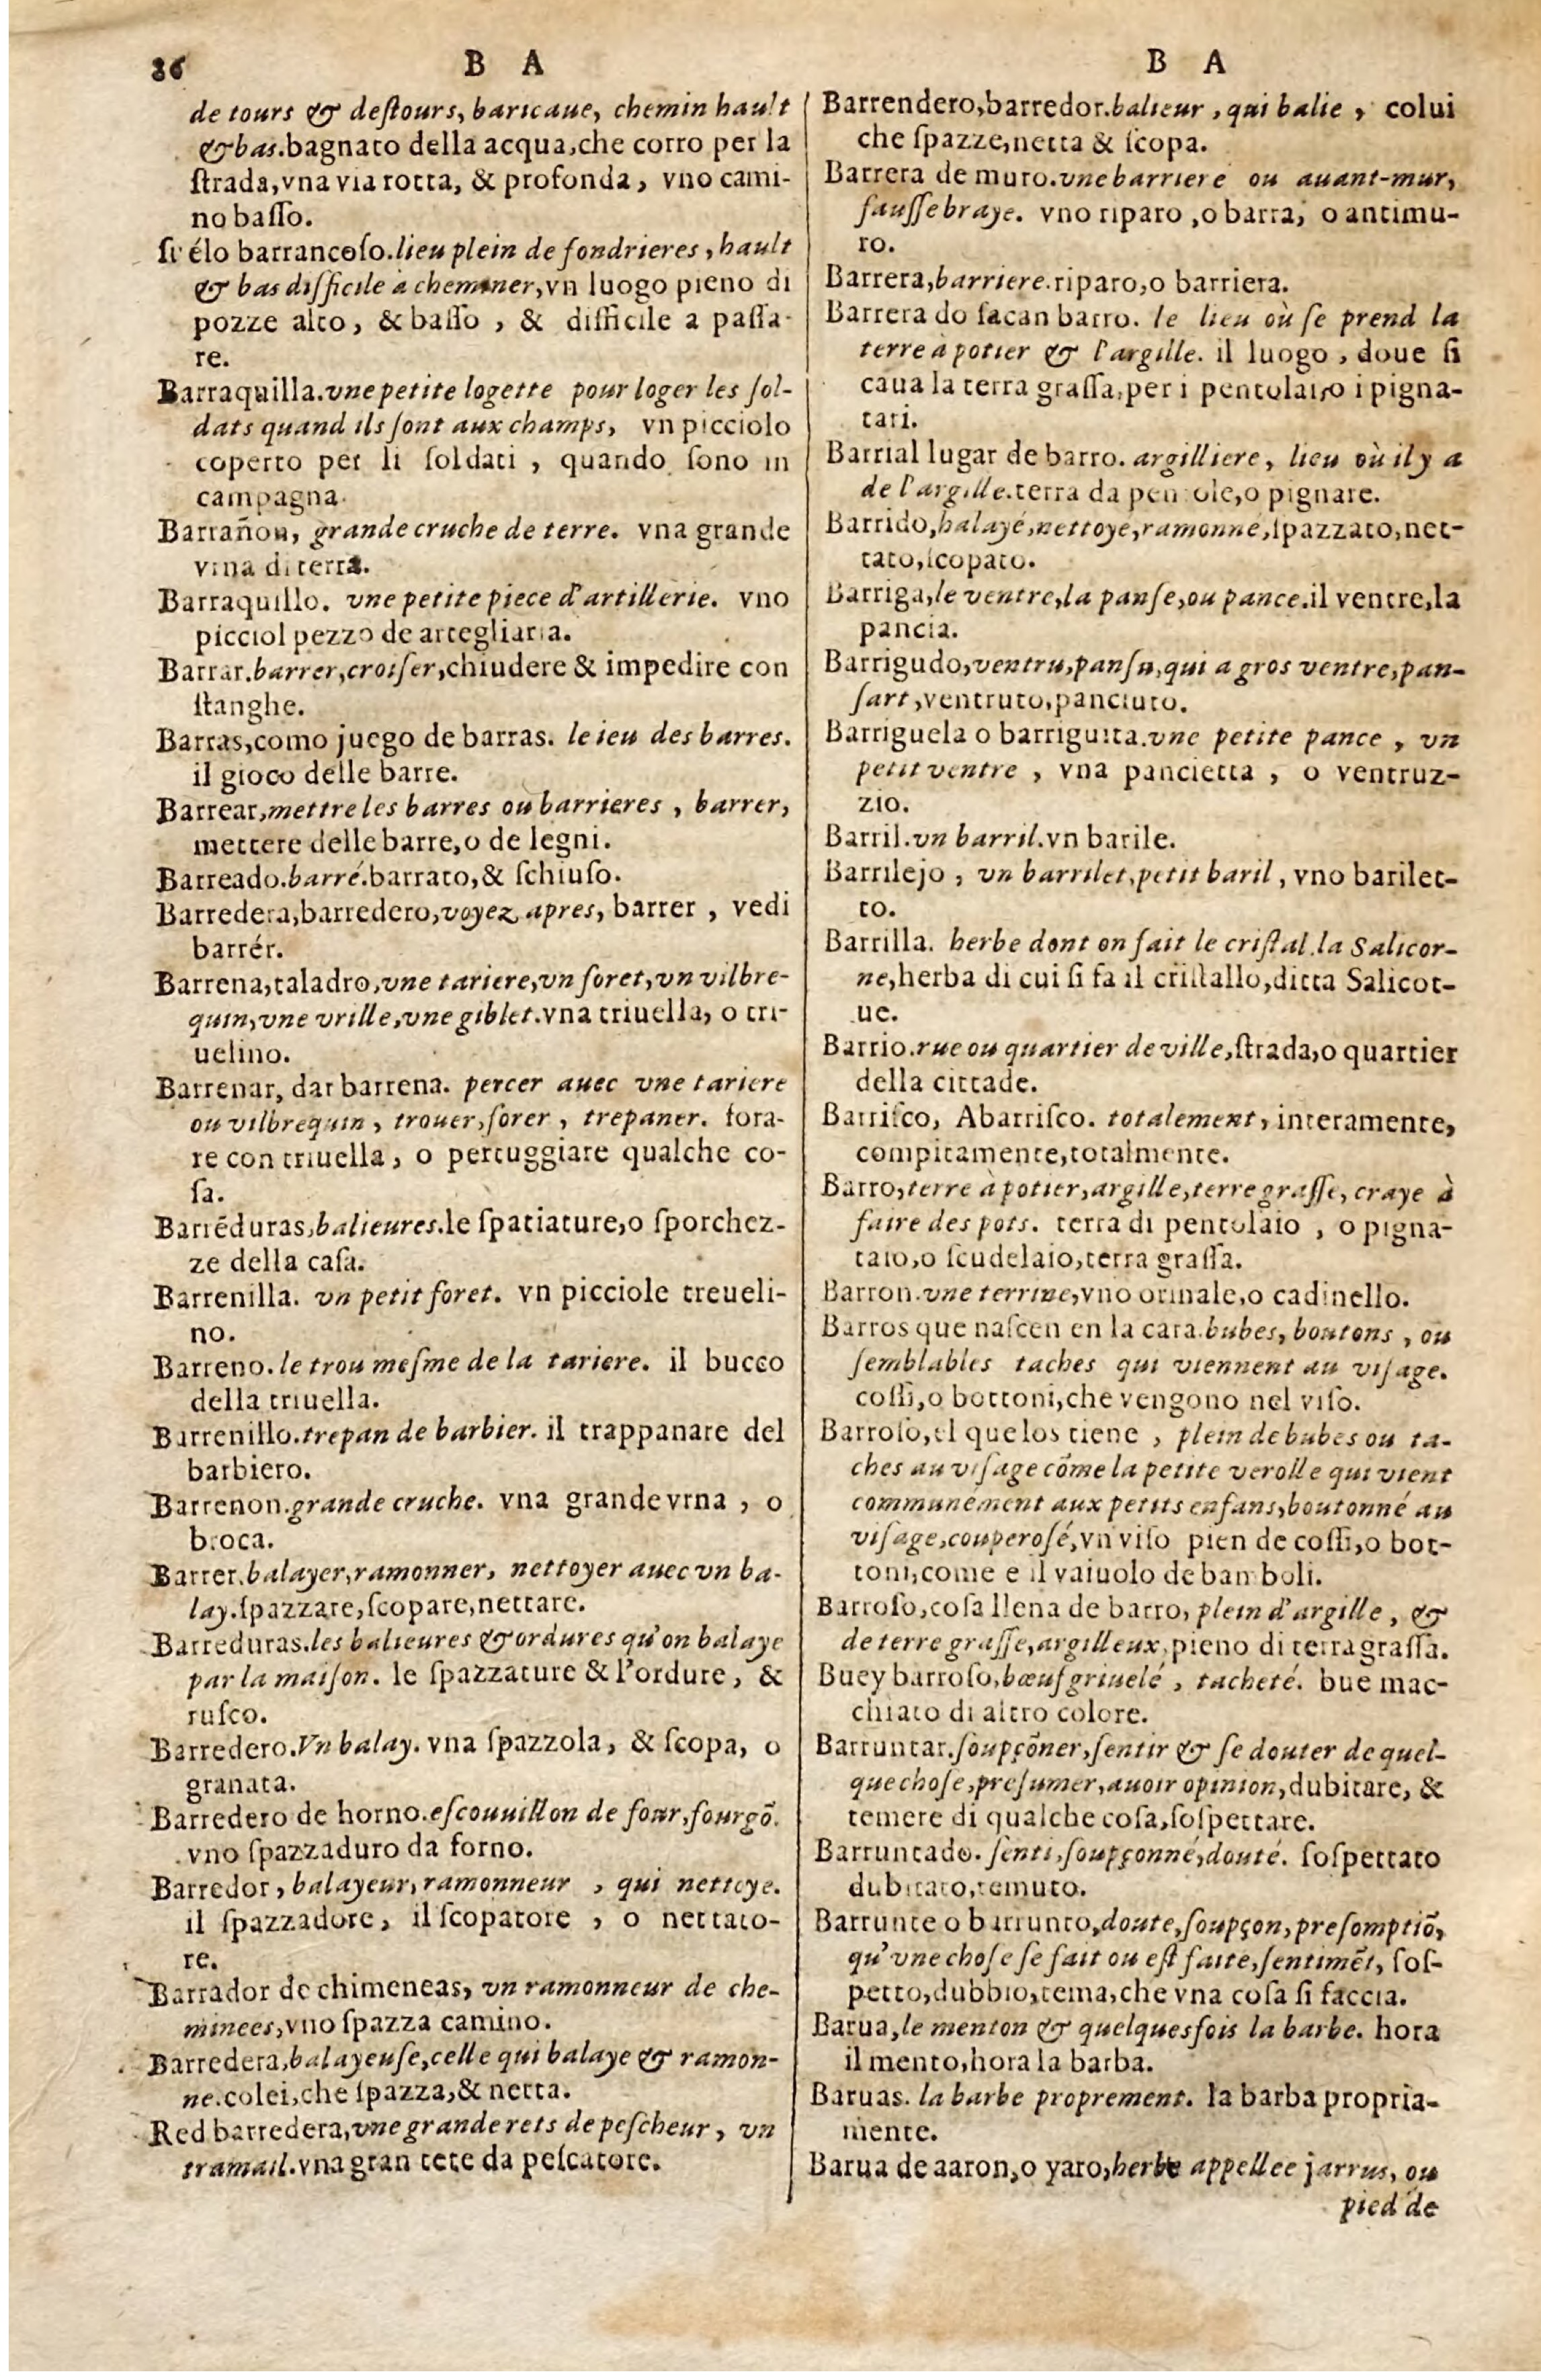 86 B A B A
de tours & deſtours, baricaue, chemin hault
& bas. bagnato della acqua, che corro per la
ſtrada, vna via rotta, & profonda, vno cami-
no baſſo.
élo barrancoſo. lieu plein de fondrieres, hault
& bas difficile à cheminer, vn luogo pieno di
pozze alto, & baſſo, & difficile a paſſa-
re.
Barraquilla. vne petite logette pour loger les ſol-
dats quand ils ſont aux champs, vn picciolo
coperto per li ſoldati, quando ſono in
campagna.
Barrañon, grande cruche de terre. vna grande
vrna di terra.
Barraquillo. vne petite piece d'artillerie. vno
picciol pezzo de artegliaria.
Barrar. barrer, croiſer, chiudere & impedire con
ſtanghe.
Barras, como juego de barras. le ieu des barres.
il gioco delle barre.
Barrear, mettre les barres ou barrieres, barrer,
mettere delle barre, o de legni.
Barreado. barré. barrato, & ſchiuſo.
Barredera, barredero, voyez apres, barrer, vedi
barrér.
Barrena, taladro, vne tariere, vn foret, vn vilbre-
quin, vne vrille, vne giblet. vna triuella, o tri-
uelino.
Barrenar, dar barrena. percer auec vne tariere
ou vilbrequin, trouer, forer, trepaner. fora-
re con triuella, o pertuggiare qualche co-
ſa.
Barrēduras, balieures. le ſpatiature, o ſporchez-
ze della caſa.
Barrenilla. vn petit foret. vn picciole treueli-
no.
Barreno. le trou meſme de la tariere. il bucco
della triuella.
Barrenillo. trepan de barbier. il trappanare del
barbiero.
Barrenon. grande cruche. vna grande vrna, o
broca.
Barrer. balayer, ramonner, nettoyer auec vn ba-
lay. ſpazzare, ſcopare, nettare.
Barreduras. les balieures & ordures qu'on balaye
par la maiſon. le ſpazzature & l'ordure, &
ruſco.
Barredero. Vn balay. vna ſpazzola, & ſcopa, o
granata.
Barredero de horno. eſcouuillon de four, fourgō.
vno ſpazzaduro da forno.
Barredor, balayeur, ramonneur, qui nettoye.
il ſpazzadore, il ſcopatore, o nettato-
re.
Barrador de chimeneas, vn ramonneur de che-
minees, vno ſpazza camino.
Barredera, balayeuſe, celle qui balaye & ramon-
ne. colei, che ſpazza, & netta.
Red barredera, vne grande rets de peſcheur, vn
tramail. vna gran rete da peſcatore.
Barrendero, barredor. balieur, qui balie, colui
che ſpazze, netta & ſcopa.
Barrera de muro. vne barriere ou auant-mur,
fauſſe braye. vno riparo, o barra, o antimu-
ro.
Barrera, barriere. riparo, o barriera.
Barrera do ſacan barro. le lieu où ſe prend la
terre à potier & l'argille. il luogo, doue ſi
caua la terra graſſa, per i pentolai, o i pigna-
tari.
Barrial lugar de barro. argilliere, lieu où il y a
de l'argille. terra da pentole, o pignare.
Barrido, balayé, nettoye, ramonné, ſpazzato, net-
tato, ſcopato.
Barriga, le ventre, la panſe, ou pance. il ventre, la
pancia.
Barrigudo, ventru, panſu, qui a gros ventre, pan-
ſart, ventruto, panciuto.
Barriguela o barriguita. vne petite pance, vn
petit ventre, vna pancietta, o ventruz-
zio.
Barril. vn barril. vn barile.
Barrilejo, vn barrilet, petit baril, vno barilet-
to.
Barrilla. herbe dont on fait le criſtal. la Salicor-
ne, herba di cui ſi fa il criſtallo, ditta Salicot-
ue.
Barrio. rue ou quartier de ville, ſtrada, o quartier
della cittade.
Barriſco, Abarriſco. totalement, interamente,
compitamente, totalmente.
Barro, terre à potier, argille, terre graſſe, craye à
faire des pots. terra di pentolaio, o pigna-
taio, o ſcudelaio, terra graſſa.
Barron. vne terrine, vno orinale, o cadinello.
Barros que naſcen en la cara. bubes, boutons, ou
ſemblables taches qui viennent au viſage.
coſſi, o bottoni, che vengono nel viſo.
Barroſo, el que los tiene, plein de bubes ou ta-
ches au viſage cōme la petite verolle qui vient
communément aux petits enfans, boutonné au
viſage, couperoſé, vn viſo pien de coſſi, o bot-
toni, come e il vaiuolo de bamboli.
Barroſo, coſa llena de barro, plein d'argille, &
de terre graſſe, argilleux, pieno di terra graſſa.
Buey barroſo, bœuf griuelé, tacheté. bue mac-
chiato di altro colore.
Barruntar. ſoupçōner, ſentir & ſe douter de quel-
que choſe, preſumer, auoir opinion, dubitare, &
temere di qualche coſa, ſoſpettare.
Barruntado. ſenti, ſoupçonné, douté. ſoſpettato
dubitato, temuto.
Barrunte o barrunto, doute, ſoupçon, preſomptiō,
qu'vne choſe ſe fait ou eſt faite, ſentimēt, ſoſ-
petto, dubbio, tema, che vna coſa ſi faccia.
Barua, le menton & quelquesfois la barbe. hora
il mento, hora la barba.
Baruas. la barbe proprement. la barba propria-
mente.
Barua de aaron, o yaro, herbe appellee jarrus, ou
pied de